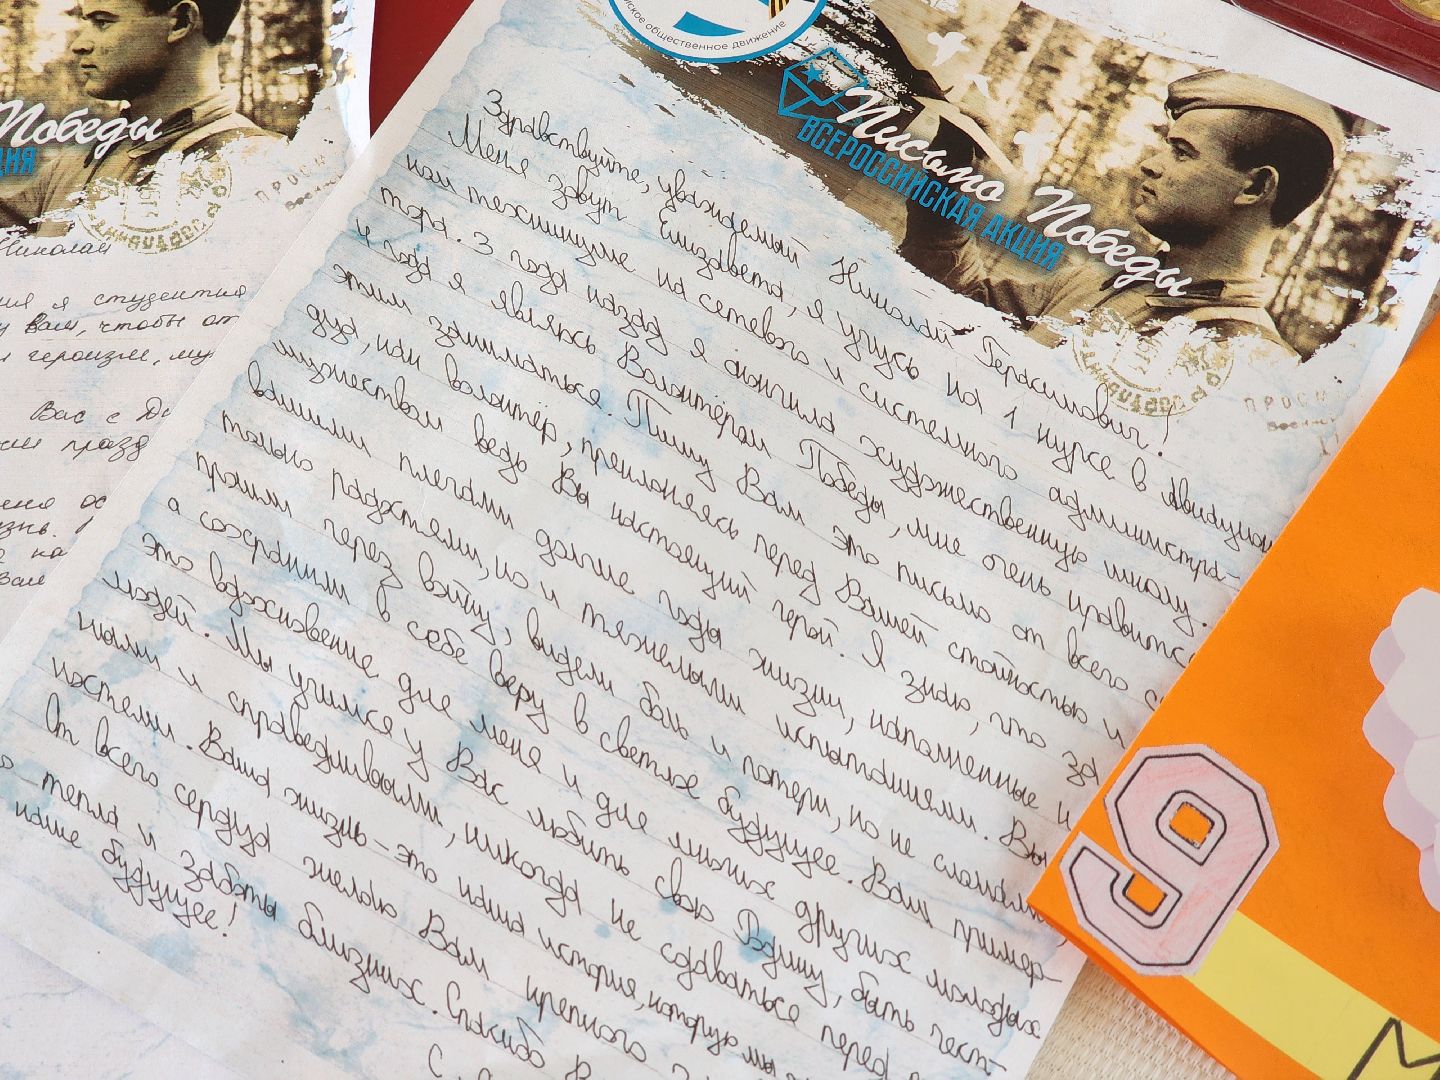 общественное движение
Письмо Победы
ВСЕРОССИЙСКАЯ АКЦИЯ
Здравствуйте, уважаемый Николай Герасимович!
Меня зовут Елизавета, я учусь на 1 курсе в Авиацион
ном техникуме на сетевого и системного администра-
тора. 3 года назад я окончила художественную школу.
4 года я являюсь Волонтёром Победы, мне очень нравится
этим заниматься. Пишу Вам это письмо от всего
душа, как волонтёр, преклоняясь перед Вашей стойкостью и
мужеством ведь Вы настоящий герой. Я знаю, что за
вашими плечами долгие годы жизни, наполненные н
только радостями, но и тяжелыми испытаниями. Вы
прошли через войну, видели боль и потери, но не сломались,
а сохранили в себе веру в светлое будущее. Ваш пример-
это вдохновение для меня и для многих других молодых
людей. Мы учимся у Вас любить свою Родину, быть чест-
ными и справедливыми, никогда не сдаваться перед
ностями. Ваша жизнь - это наша история, которую мы
От всего сердца желаю Вам крепкого
тепла и заботы близких. Спасибо
наше будущее!
С
Победы
Николай
я студентка
Вам, чтобы от
героизм, му
Вас с
празд
на
Вам
ПРОС
9
М